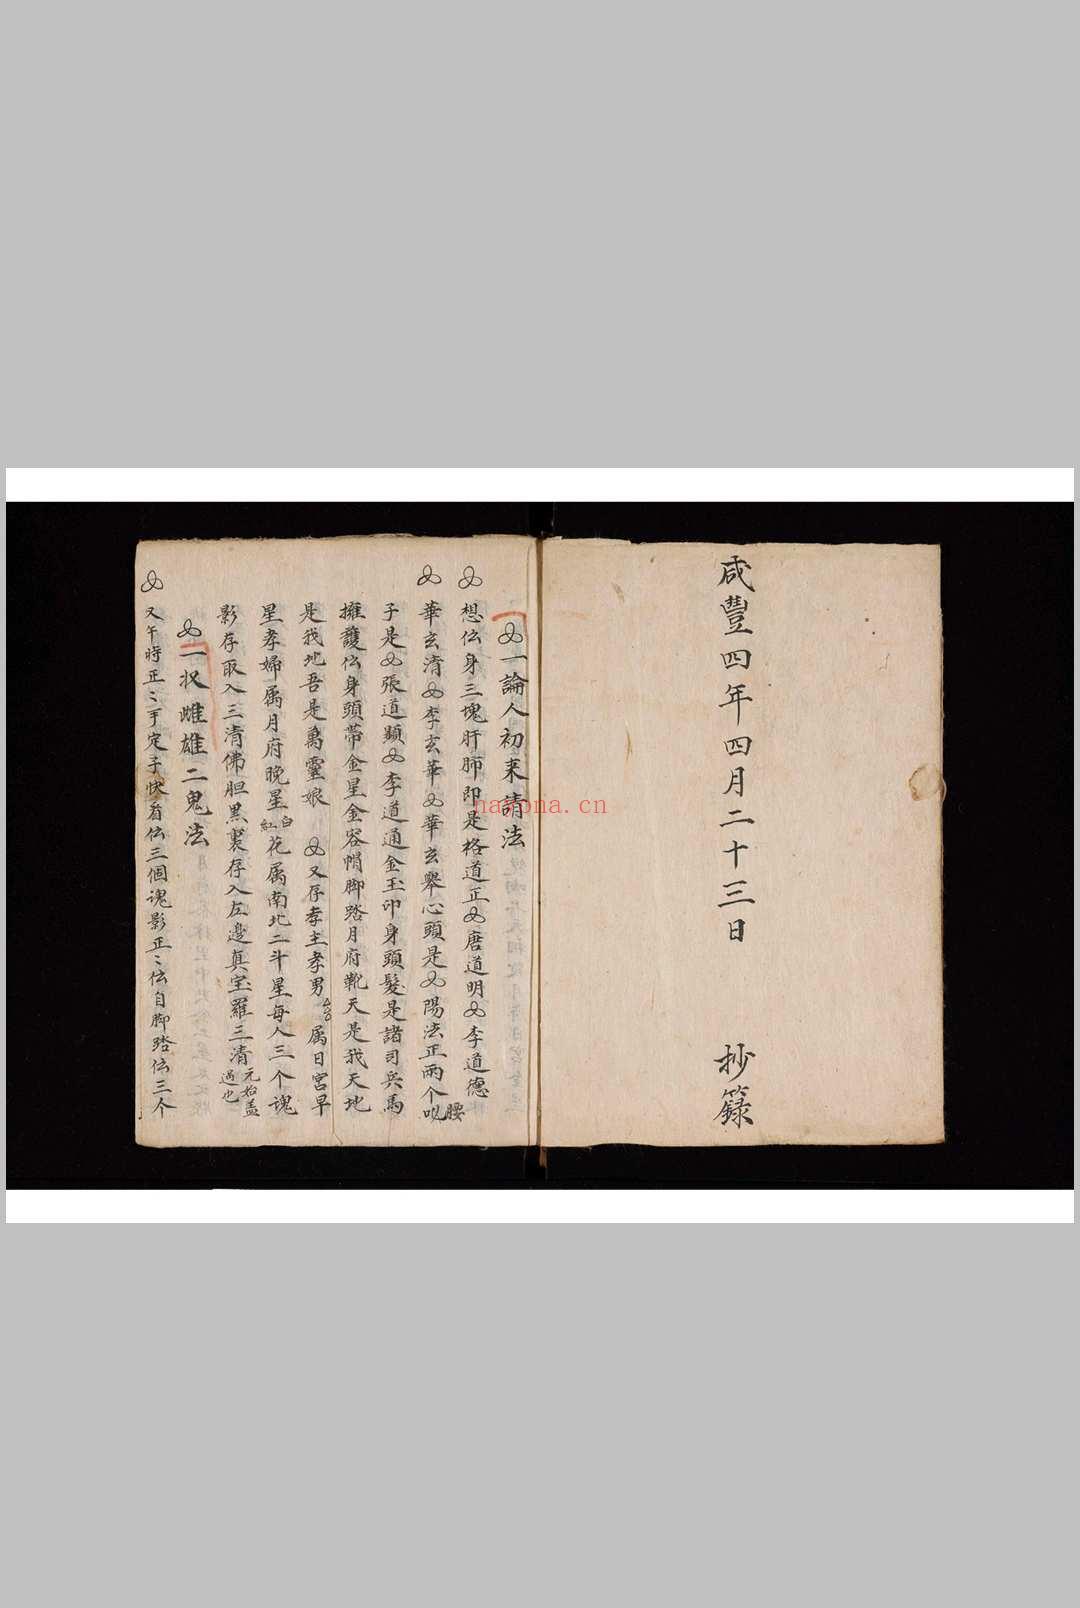 咸豐四年四月二十三日 抄籙
一論人初来請法
想伝身三塊肝肺即是格道正唐道明李道德
腰
華玄清李玄華華玄舉心頭是陽法正兩个
子是張道顯李道通金玉印身頭髮是諸司兵馬
擁護伝身頭帶金星金容帽脚踏月府靴天是我天地
是我地吾是萬靈娘 又存孝主孝男属日宮早
星孝婦属月府晚星白紅花属南北二斗星每人三个魂
影存取入三清佛胆黑裏存入左邊真宝羅三清元始蓋過也
一収雌雄二鬼法
又午時正〻手定手快看伝三個魂影正〻伝自脚踏伝三个
nayona.cn